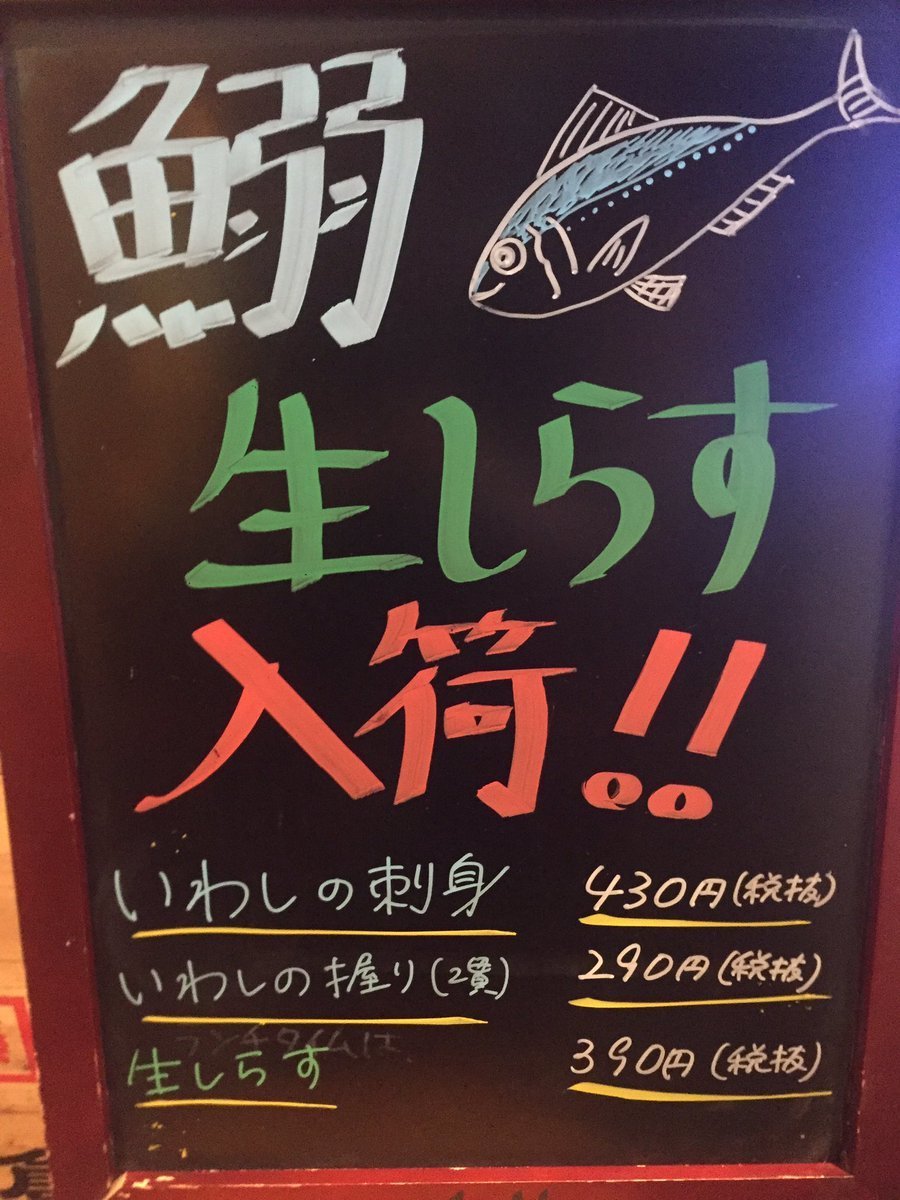 鰯
生しらす
入荷!!
いわしの刺身 430円(税抜)
いわしの握り(2貫) 290円(税抜)
ランチタイムは、
生しらす 390円(税抜)